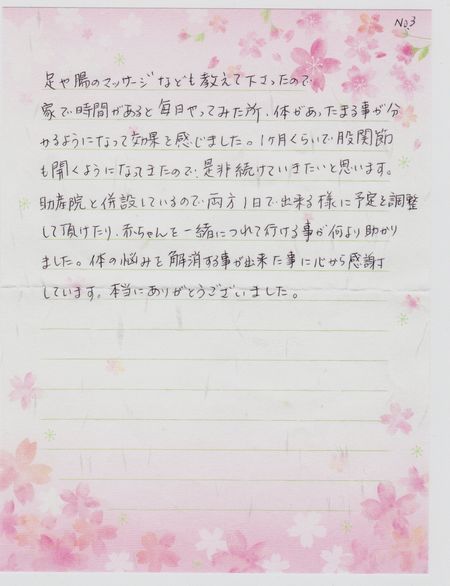 No.3
足や腸のマッサージなども教えて下さったので
家で時間があると毎日やってみた所、体があったまる事が分
かるようになって効果を感じました。1ヶ月くらいで股関節
も開くようになってきたので、是非続けていきたいと思います。
助産院と併設しているので両方1日で出来る様に予定を調整
して頂けたり、赤ちゃんを一緒につれて行ける事が何より助かり
ました。体の悩みを解消する事が出来た事に心から感謝
しています。本当にありがとうございました。